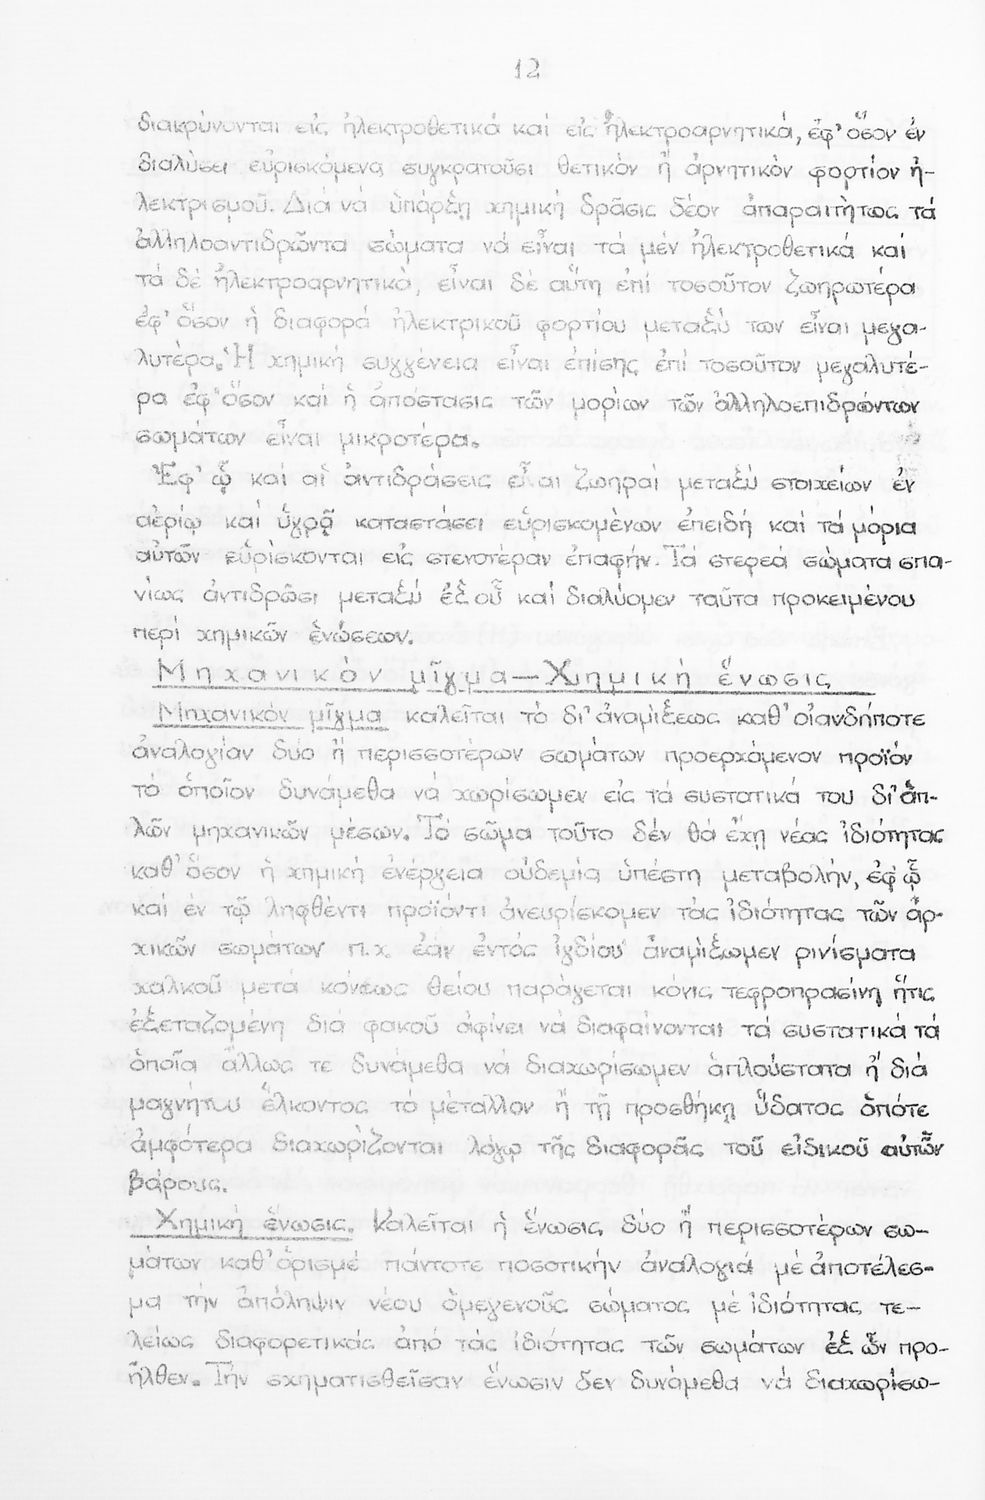 12
διακρύνονται εἰς ἠλεκτροθετικά καί εἰς ἠλεκτροαρνητικά, ἐφ' ὅσον ἐν
διαλύσει εὑρισκόμενα συγκρατοῦσι θετικὸν ἤ ἀρνητικὸν φορτίον ἠ-
λεκτρισμοῦ. Διά νά ὑπάρξῃ χημική δρᾶσις δέον ἀπαραιτήτως τά
ἀλληλοαντιδρῶντα σώματα νά εἶναι τά μέν ἠλεκτροθετικά καί
τά δέ ἠλεκτροαρνητικά, εἶναι δέ αὕτη ἐπί τοσοῦτον ζωηρωτέρα
ἐφ' ὅσον ἡ διαφορά ἠλεκτρικοῦ φορτίου μεταξύ των εἶναι μεγα-
λυτέρα. Ἡ χημική συγγένεια εἶναι ἐπίσης ἐπί τοσοῦτον μεγαλυτέ-
ρα ἐφ' ὅσον καί ἡ ἀπόστασις τῶν μορίων τῶν ἀλληλοεπιδρώντων
σωμάτων εἶναι μικροτέρα.
Ἐφ' ᾧ καί αἱ ἀντιδράσεις εἶ αι ζωηραί μεταξύ στοιχείων ἐν
ἀερίῳ καί ὑγρᾷ καταστάσει εὑρισκομένων ἐπειδή καί τά μόρια
αὐτῶν εὑρίσκονται εἰς στενοτέραν ἐπαφήν. Τά στερεά σώματα σπα-
νίως ἀντιδρῶσι μεταξύ ἐξ οὗ καί διαλύομεν ταῦτα προκειμένου
περί χημικῶν ἑνώσεων.
Μηχανικὸν μῖγμα — Χημική ἕνωσις
Μηχανικόν μῖγμα καλεῖται τὸ δι' ἀναμίξεως καθ' οἱανδήποτε
ἀναλογίαν δύο ἤ περισσοτέρων σωμάτων προερχόμενον προϊόν
τὸ ὁποῖον δυνάμεθα νά χωρίσωμεν εἰς τά συστατικά του δι' ἁπ-
λῶν μηχανικῶν μέσων. Τὸ σῶμα τοῦτο δέν θά ἔχῃ νέας ἰδιότητας
καθ' ὅσον ἡ χημική ἐνέργεια οὐδεμία ὑπέστη μεταβολήν, ἐφ' ᾧ
καί ἐν τῷ ληφθέντι προϊόντι ἀνευρίσκομεν τὰς ἰδιότητας τῶν ἀρ-
χικῶν σωμάτων π.χ. ἐάν ἐντός ἰγδίου ἀναμίξωμεν ρινίσματα
χαλκοῦ μετά κόνεως θείου παράγεται κόνις τεφροπρασίνη ἥτις
ἐξεταζομένη διά φακοῦ ἀφίνει νά διαφαίνονται τά συστατικά τά
ὁποῖα ἄλλως τε δυνάμεθα νά διαχωρίσωμεν ἁπλούστατα ἤ διά
μαγνήτου ἕλκοντος τὸ μέταλλον ἤ τῇ προσθήκῃ ὕδατος ὁπότε
ἀμφότερα διαχωρίζονται λόγῳ τῆς διαφορᾶς τοῦ εἰδικοῦ αὐτῶν
βάρους.
Χημική ἕνωσις. Καλεῖται ἡ ἕνωσις δύο ἤ περισσοτέρων σω-
μάτων καθ' ὁρισμέ πάντοτε ποσοτικήν ἀναλογιά μέ ἀποτέλεσ-
μα τήν ἀπόληψιν νέου ὁμεγενοῦς σώματος μέ ἰδιότητας τε-
λείως διαφορετικάς ἀπό τάς ἰδιότητας τῶν σωμάτων ἐξ ὧν προ-
ῆλθεν. Τήν σχηματισθεῖσαν ἕνωσιν δέν δυνάμεθα νά διαχωρίσω-